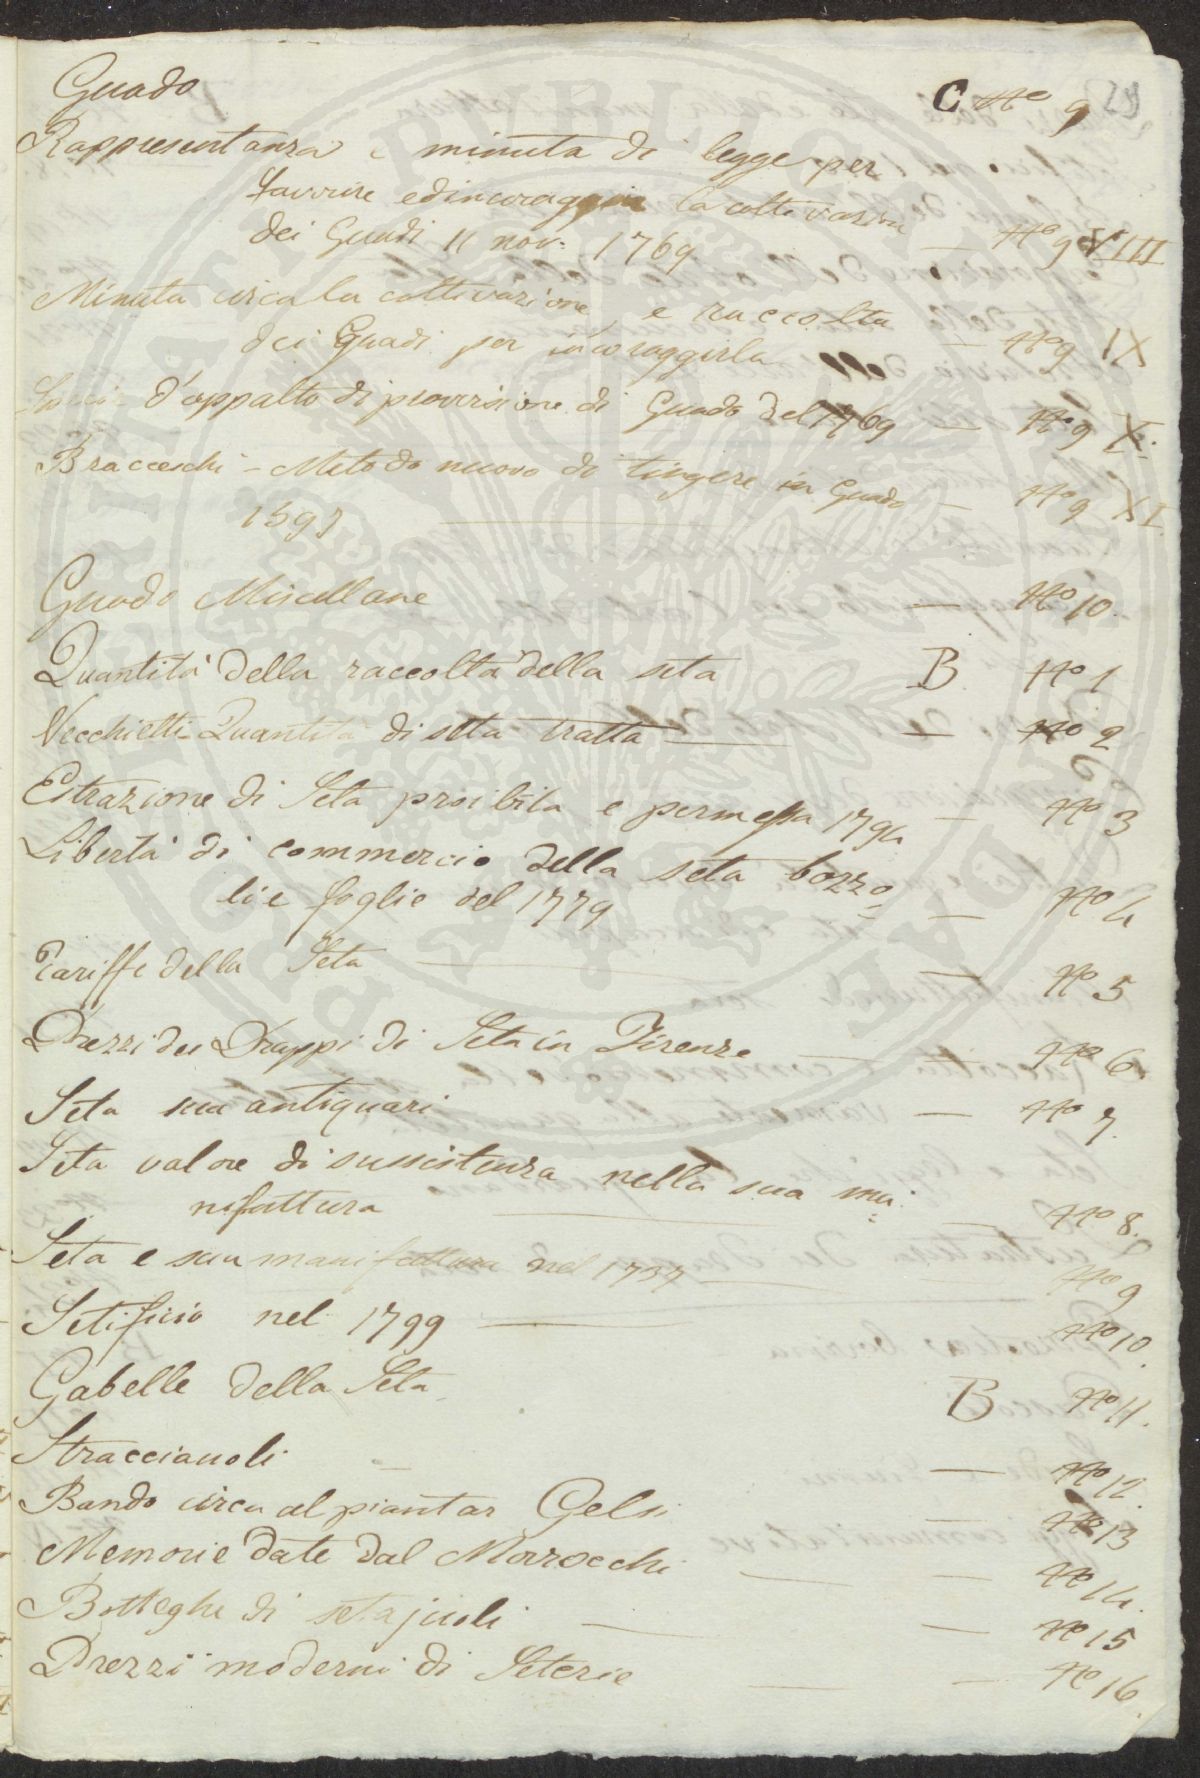 Guado C Nº 9 29
Rappresentanza e minuta di legge per
favorire ed incoraggire la coltivazion
dei Guadi 11 nov: 1769 — Nº 9 VIII
Minuta circa la coltivazione e raccolta
dei Guadi per incoraggirla — Nº 9 IX
d'appalto di provvisione di Guado del 1769 — Nº 9 X.
Bracceschi - Metodo nuovo di tingere in Guado — Nº 9 XI
1597
Guado Miscellane — Nº 10.
Quantità della raccolta della seta B Nº 1
Vecchietti Quantità di seta tratta — Nº 2
Estrazione di Seta proibita e permessa — Nº 3
Libertà di commercio della seta bozzo
li e foglie del 1779 — Nº 4
Tariffe della Seta — Nº 5
Prezzi dei Drappi di Seta in Firenze Nº 6.
Seta antiquari — Nº 7.
Seta valore di sussistenza nella sua ma
nifattura — Nº 8.
Seta e sua manifattura nel 1737 — Nº 9
Setificio nel 1799 — Nº 10.
Gabelle della Seta B Nº 11.
Stracciauoli — Nº 12.
Bando circa al piantar Gelsi — Nº 13
Memorie date dal Morrocchi — Nº 14.
Botteghe di setajuoli — Nº 15
Prezzi moderni di Seterie — Nº 16.